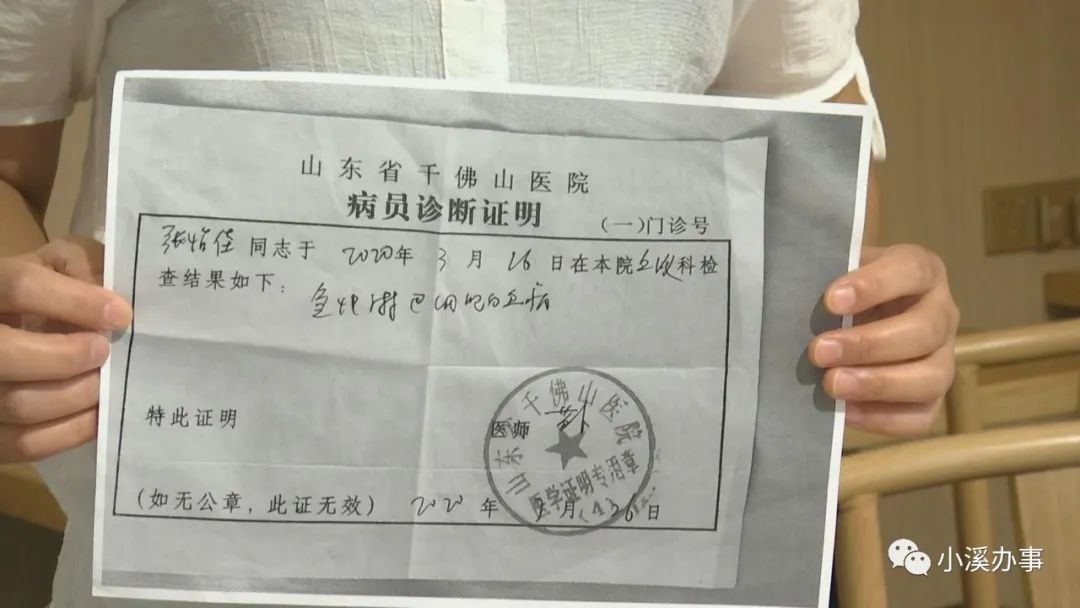 山东省千佛山医院
病员诊断证明
(一)门诊号
张怡佳 同志于 2020年 3 月 26 日在本院血液科检
查结果如下:
急性淋巴细胞白血病
特此证明
医师
山东省千佛山医院
医学证明专用章
(如无公章,此证无效) 2020 年 3 月 26 日
小溪办事